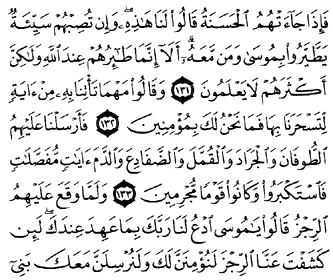 فَإِذَا جَآءَتْهُمُ ٱلْحَسَنَةُ قَالُوا۟ لَنَا هَٰذِهِۦ ۖ وَإِن تُصِبْهُمْ سَيِّئَةٌ
يَطَّيَّرُوا۟ بِمُوسَىٰ وَمَن مَّعَهُۥٓ ۗ أَلَآ إِنَّمَا طَٰٓئِرُهُمْ عِندَ ٱللَّهِ وَلَٰكِنَّ
أَكْثَرَهُمْ لَا يَعْلَمُونَ ١٣١ وَقَالُوا۟ مَهْمَا تَأْتِنَا بِهِۦ مِنْ ءَايَةٍ
لِّتَسْحَرَنَا بِهَا فَمَا نَحْنُ لَكَ بِمُؤْمِنِينَ ١٣٢ فَأَرْسَلْنَا عَلَيْهِمُ
ٱلطُّوفَانَ وَٱلْجَرَادَ وَٱلْقُمَّلَ وَٱلضَّفَادِعَ وَٱلدَّمَ ءَايَٰتٍ مُّفَصَّلَٰتٍ
فَٱسْتَكْبَرُوا۟ وَكَانُوا۟ قَوْمًا مُّجْرِمِينَ ١٣٣ وَلَمَّا وَقَعَ عَلَيْهِمُ
ٱلرِّجْزُ قَالُوا۟ يَٰمُوسَى ٱدْعُ لَنَا رَبَّكَ بِمَا عَهِدَ عِندَكَ ۖ لَئِن
كَشَفْتَ عَنَّا ٱلرِّجْزَ لَنُؤْمِنَنَّ لَكَ وَلَنُرْسِلَنَّ مَعَكَ بَنِىٓ